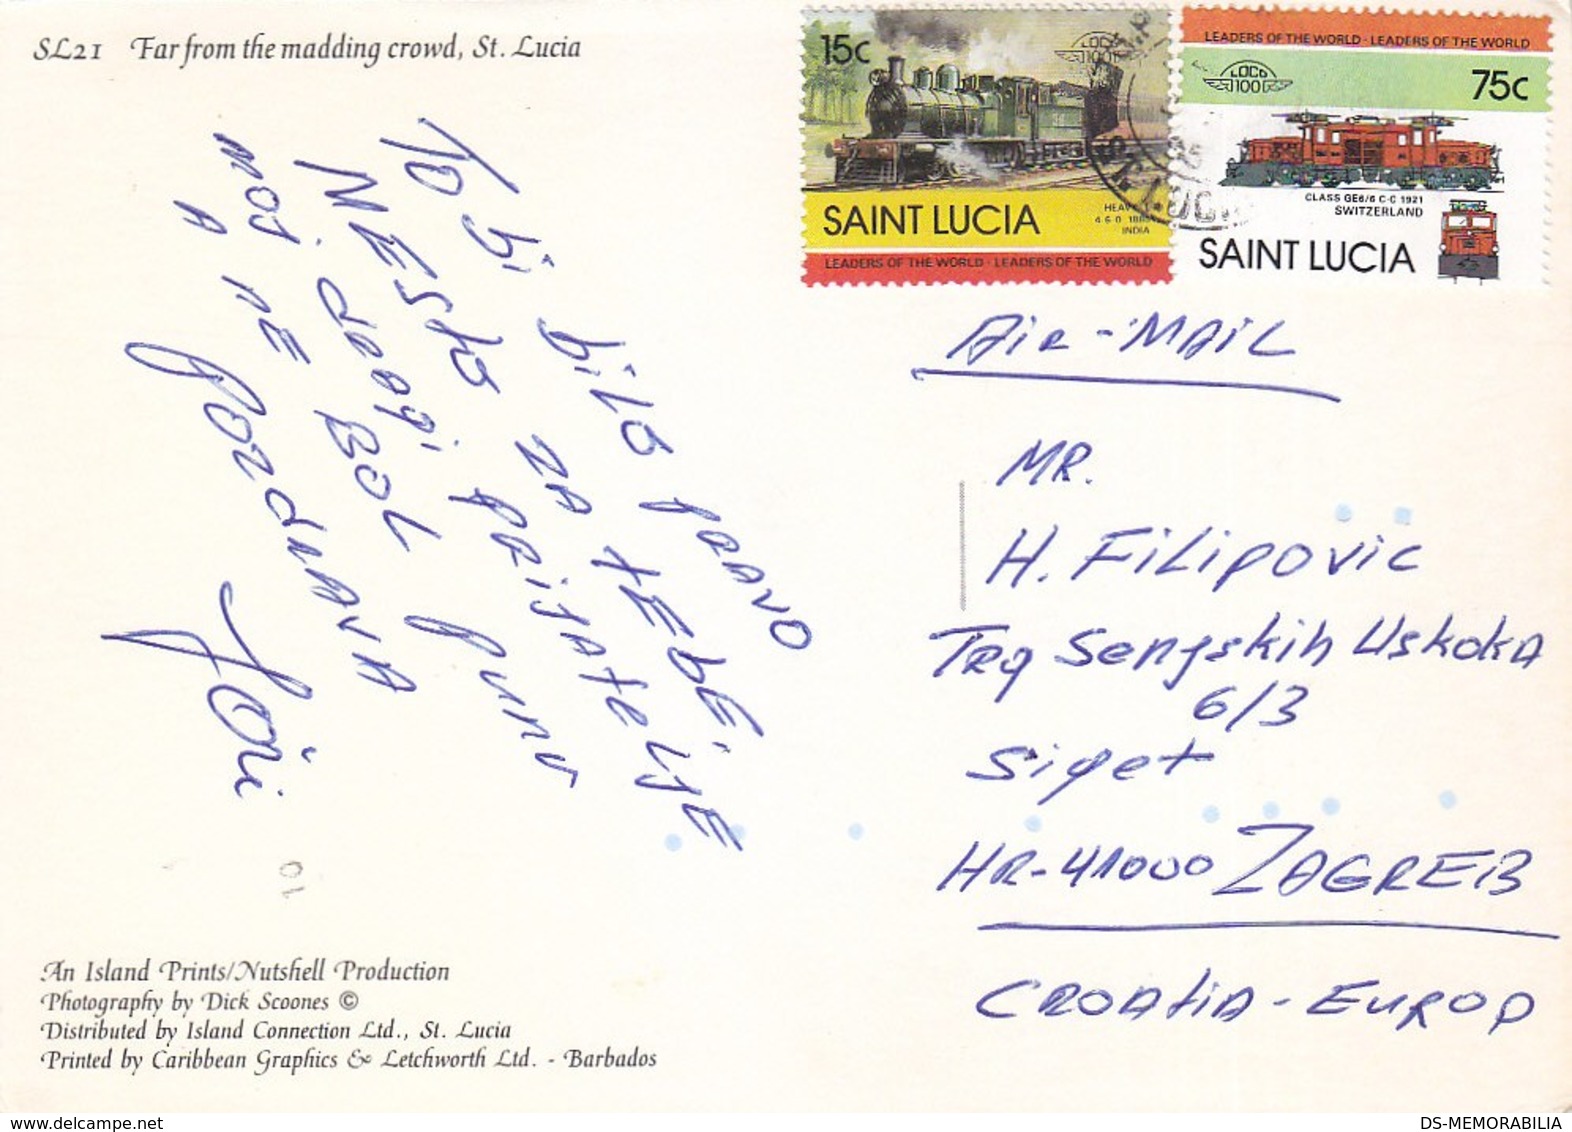 SL21 Far from the madding crowd, St. Lucia
To bi bilo pravo
MESto ZA tEBE,
moj dragi prijatelju
A NE BOL punu
pozdrava
Joži
01
An Island Prints/Nutshell Production
Photography by Dick Scoones ©
Distributed by Island Connection Ltd., St. Lucia
Printed by Caribbean Graphics & Letchworth Ltd. - Barbados
15c
LOCO
100
SAINT LUCIA
4.6.0
INDIA
LEADERS OF THE WORLD · LEADERS OF THE WORLD
LEADERS OF THE WORLD · LEADERS OF THE WORLD
LOCO
100
75c
CLASS GE6/6 C-C 1921
SWITZERLAND
SAINT LUCIA
AiR-MAiL
MR.
H. FiLipovic
TRg Senjskih Uskoka
6/3
Siget
HR-41000 ZAGREB
CROAtiA - EUROP
DS-MEMORABILIA